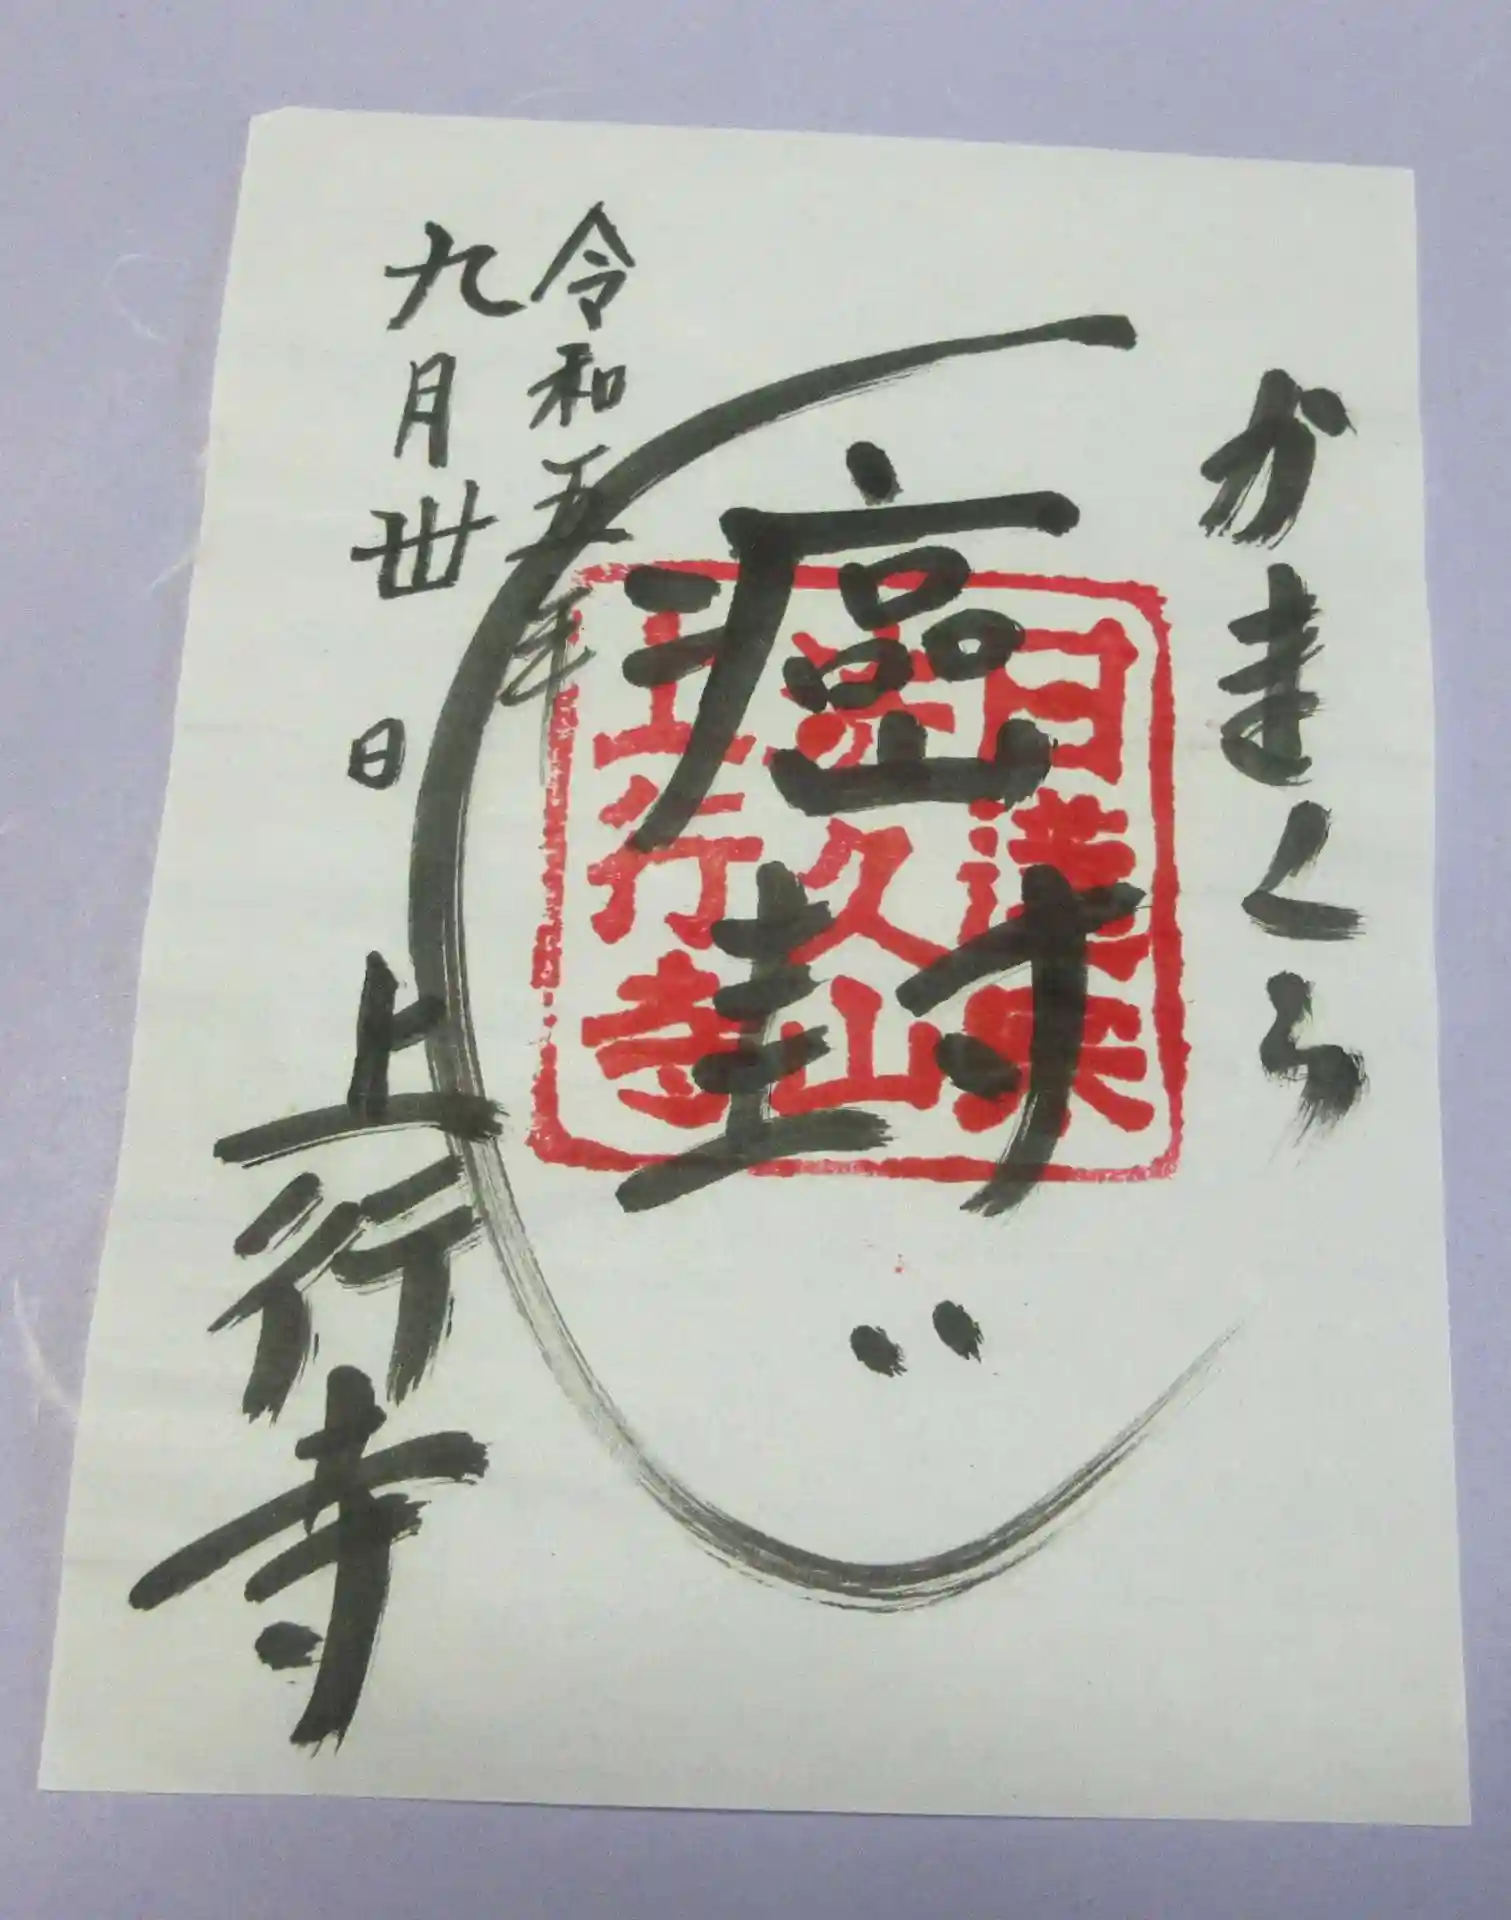 かまくら
癌封じ
日蓮宗
法久山
上行寺
令和五年
九月卅日
上行寺